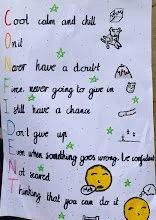 Cool calm and chill
On it
Never have a doubt
Fine, never going to give in
I still have a chance
Don't give up
Even when something goes wrong. Be confident
Not scared
Thinking that you can do it